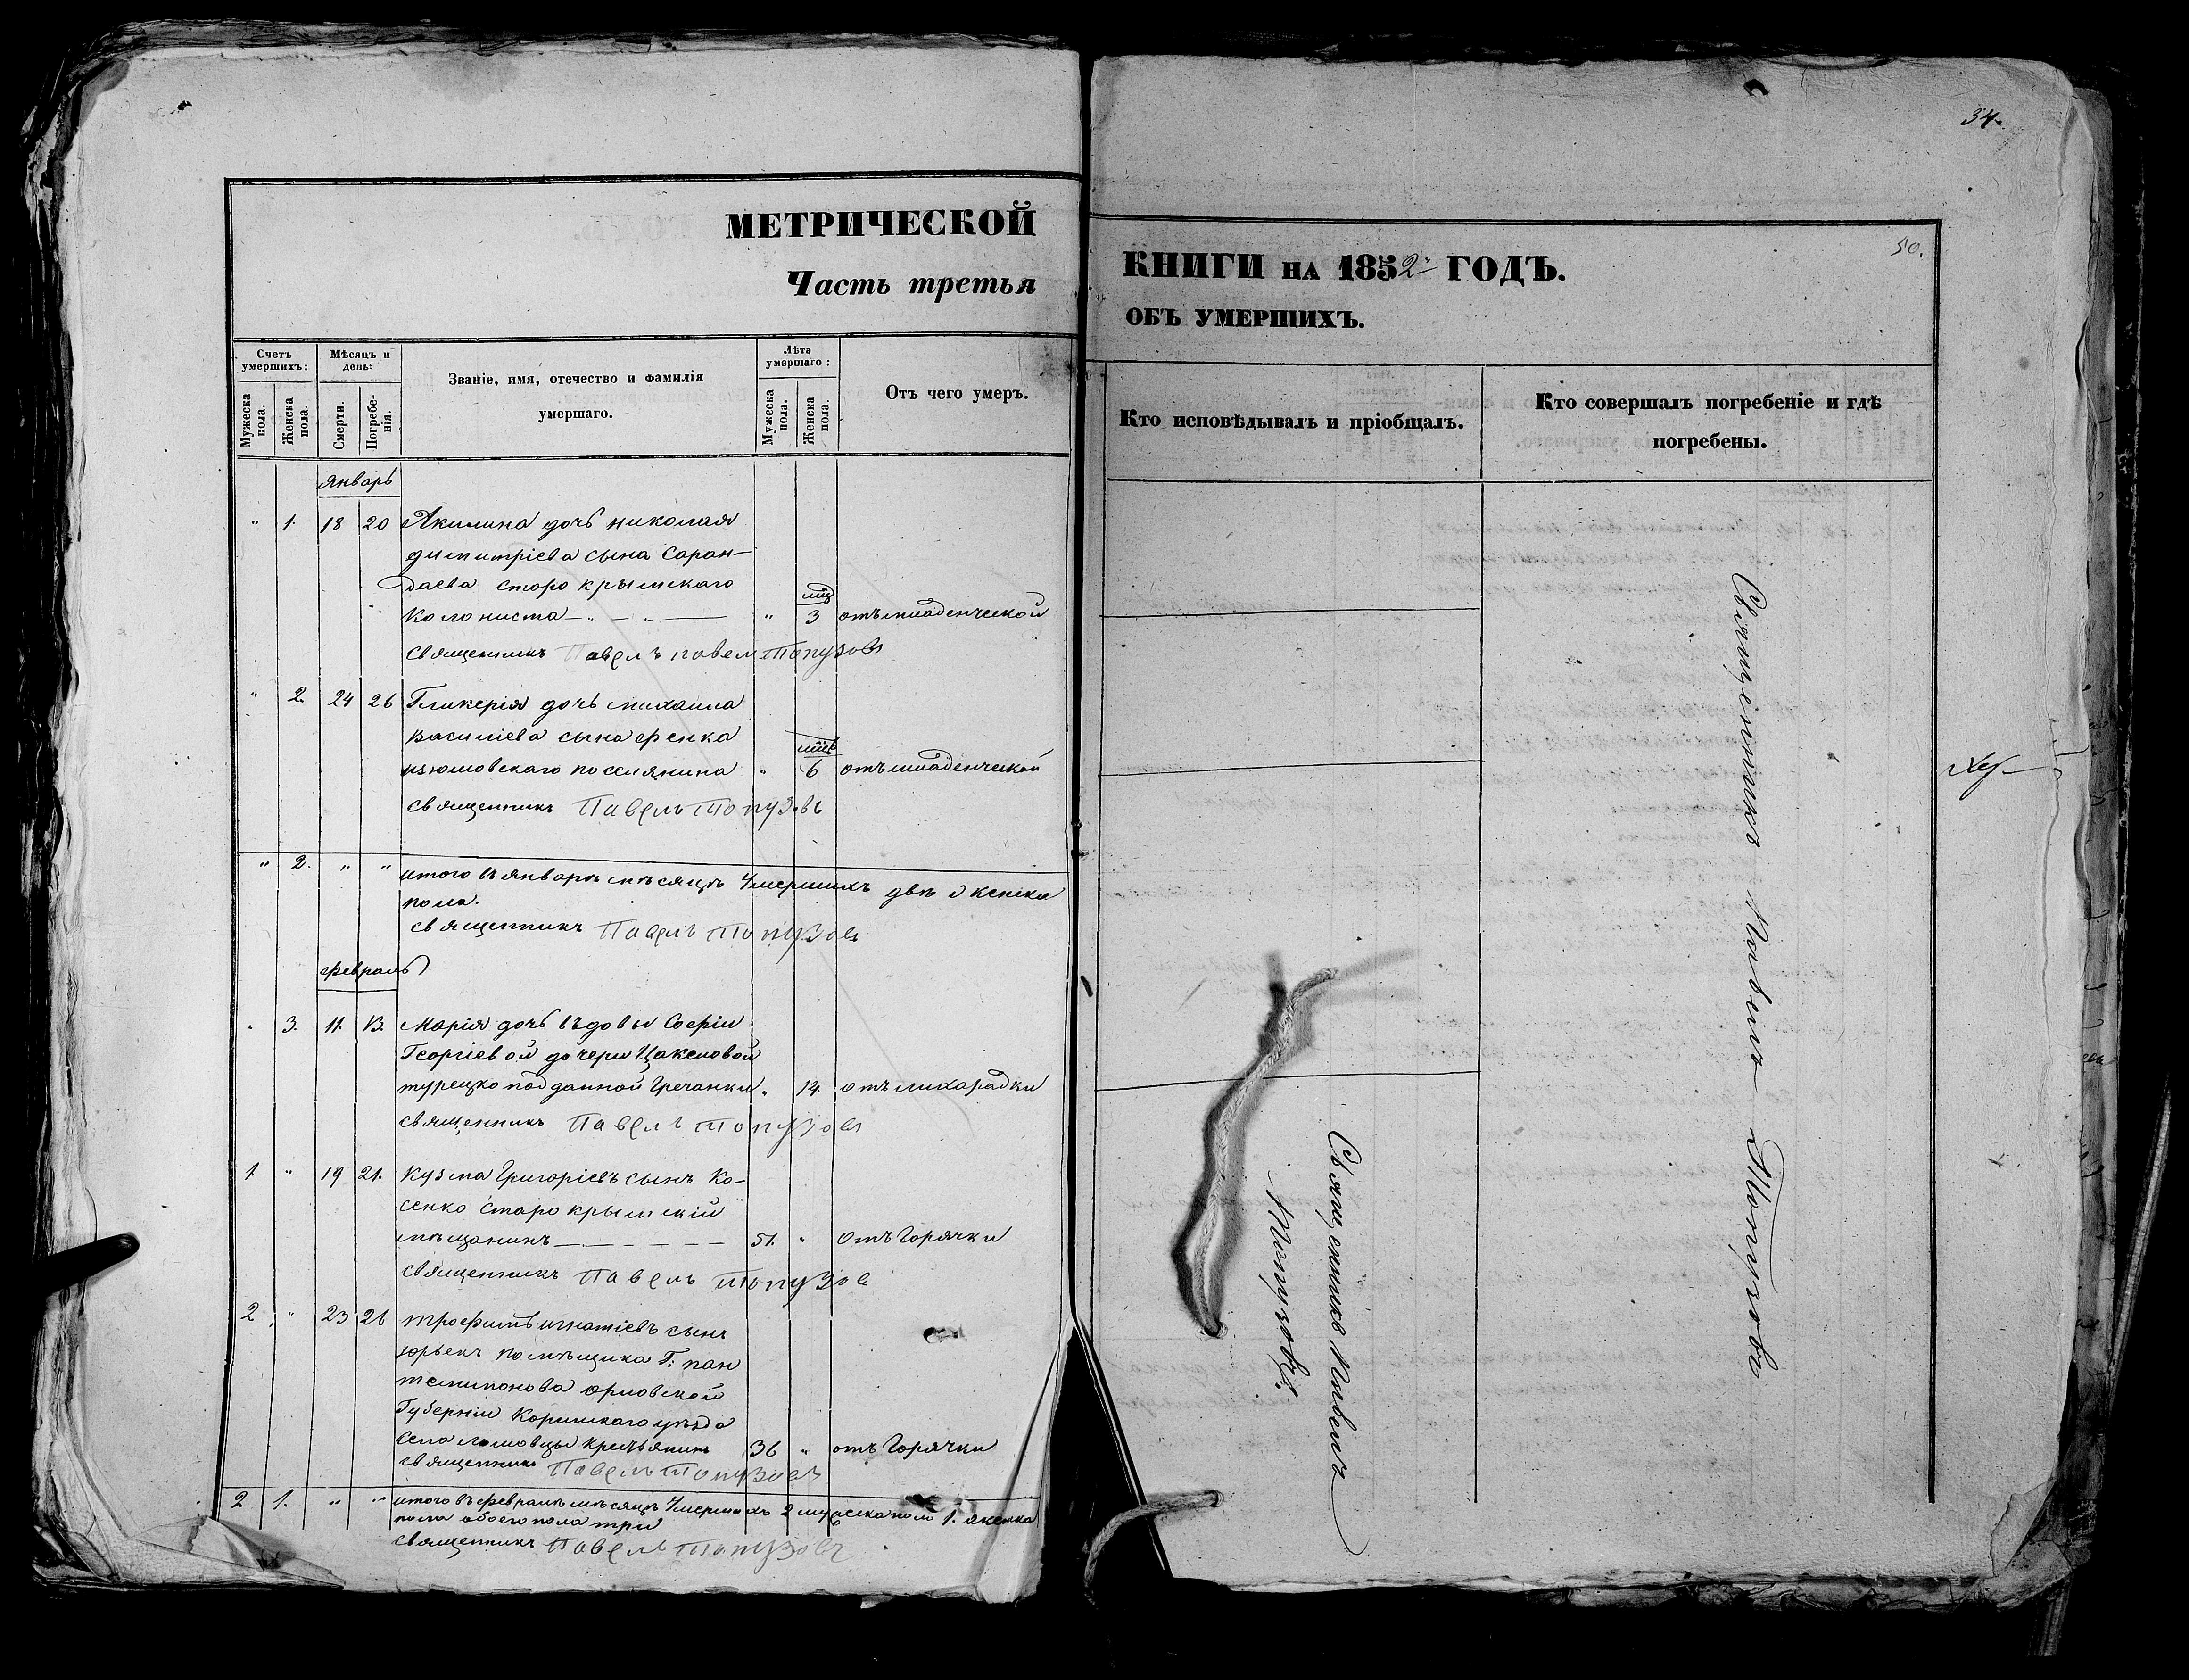 34.
МЕТРИЧЕСКОЙ
КНИГИ НА 1852 ГОДЪ.
50.
Часть третья
ОБЪ УМЕРШИХЪ.
Счетъ умершихъ:
Мѣсяцъ и день:
Званіе, имя, отечество и фамилія
умершаго.
Лѣта умершаго:
Отъ чего умеръ.
Кто исповѣдывалъ и пріобщалъ.
Кто совершалъ погребеніе и гдѣ
погребены.
Мужеска пола.
Женска пола.
Смерти.
Погребенія.
Мужеска пола.
Женска пола.
Январь
" 1. 18 20 Акилина дочь николая
димитріева сына Саран-
даева старо крымскаго
колониста " 3 отъ младенческой
священникъ Павелъ Топузовъ
" 2. 24 26 Гликерія дочь михаила
василіева сына фенка
изюмовскаго поселянина " 6 отъ младенческой
священникъ Павелъ Топузовъ
" 2. " " итого въ январѣ мѣсяцѣ умершихъ двѣ женска
пола.
священникъ Павелъ Топузовъ
февраль
" 3. 11. 13. Марія дочь вѣдовы Софіи
Георгіевой дочери Цаксновой
турецко подданной Гречанки " 14. отъ лихарадки
священникъ Павелъ Топузовъ
1. " 19 21. Кузма Григоріевъ сынъ Ко-
сенко Старо крымскій
мѣщанинъ 51. " отъ Горячки
священникъ Павелъ Топузовъ
2 " 23 26 трофимъ игнатіевъ сынъ
помѣщика Г: пан
орловской
Губерніи уѣзда
села крестьянинъ 36 " отъ Горячки
священникъ Павелъ Топузовъ
2 1. " " итого въ февралѣ мѣсяцѣ умершихъ 2 мужеска пола 1. женска
пола обоего пола три
священникъ Павелъ Топузовъ
Священникъ Павелъ
Топузовъ.
Священникъ Павелъ Топузовъ